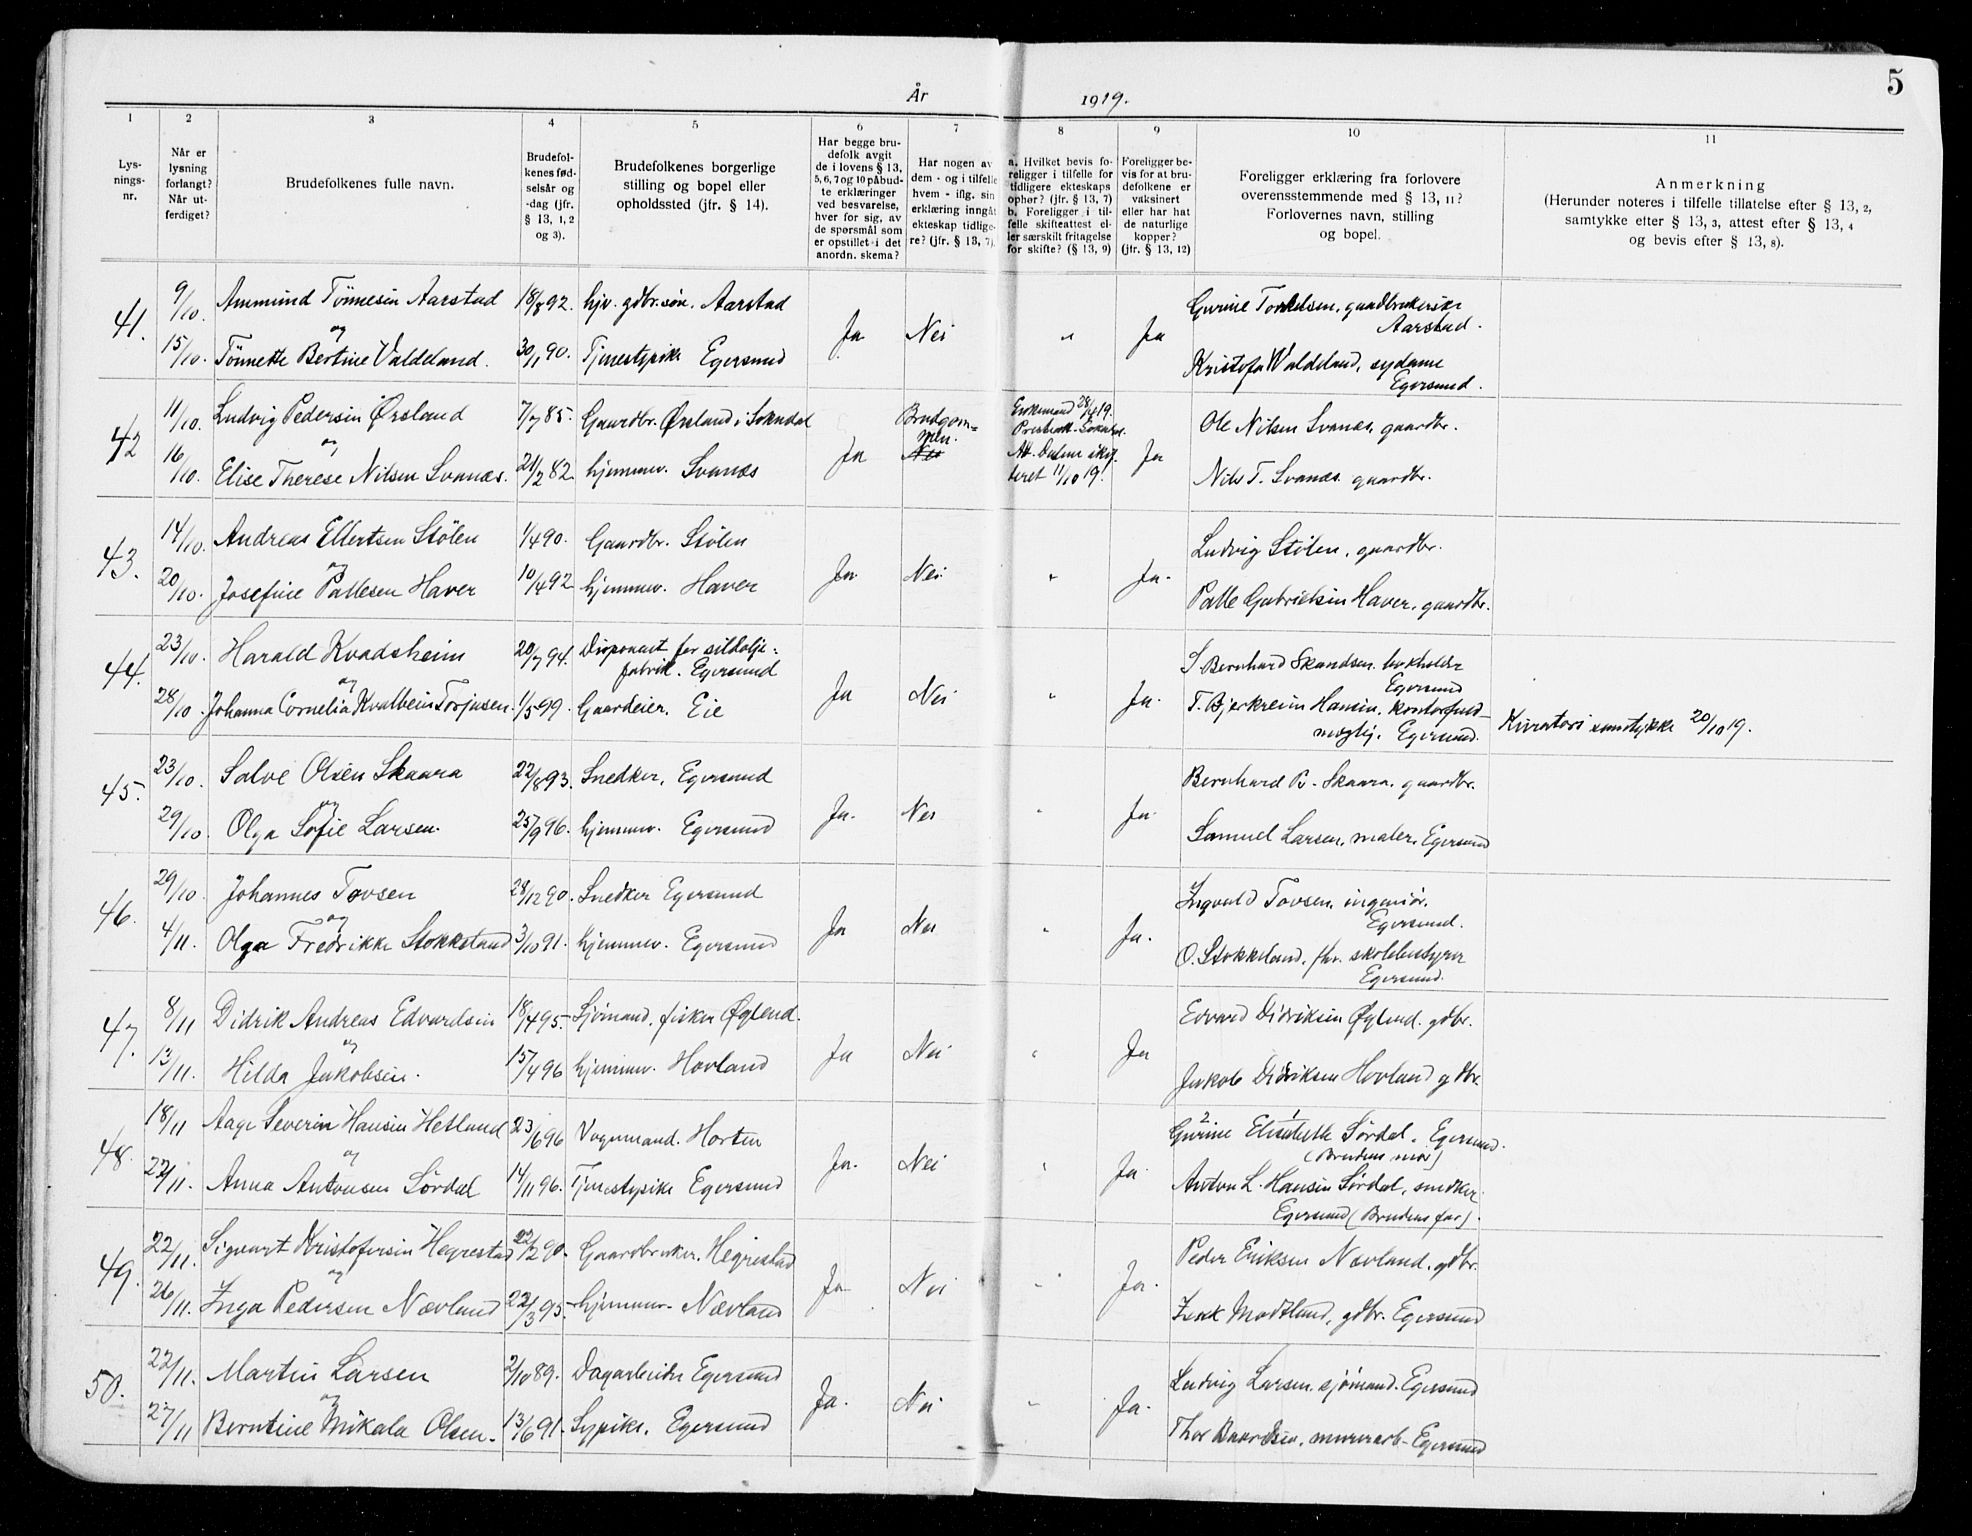 5
År 1919.
1 2 3 4 5 6 7 8 9 10 11
Lys-
nings-
nr.
Når er
lysning
forlangt?
Når ut-
ferdiget?
Brudefolkenes fulle navn.
Brudefol-
kenes fød-
selsår og
-dag (jfr.
§ 13, 1, 2
og 3).
Brudefolkenes borgerlige
stilling og bopel eller
opholdssted (jfr. § 14).
Har begge bru-
defolk avgit
de i lovens § 13,
5, 6, 7 og 10 påbud-
te erklæringer
ved besvarelse,
hver for sig, av
de spørsmål som
er opstillet i det
anordn. skema?
Har nogen av
dem - og i tilfelle
hvem - iflg. sin
erklæring inngåt
ekteskap tidlige-
re? (jfr. § 13, 7).
a. Hvilket bevis fo-
religger i tilfelle for
tidligere ekteskaps
ophør? (jfr. § 13, 7)
b. Foreligger i til-
felle skifteattest el-
ler særskilt fritagelse
for skifte? (§ 13, 9)
Foreligger be-
vis for at bru-
defolkene er
vaksinert
eller har hat
de naturlige
kopper?
(jfr. § 13, 12)
Foreligger erklæring fra forlovere
overensstemmende med § 13, 11?
Forlovernes navn, stilling
og bopel.
Anmerkning
(Herunder noteres i tilfelle tillatelse efter § 13, 2,
samtykke efter § 13, 3, attest efter § 13, 4
og bevis efter § 13, 8).
41. 9/10. Ammund Tönnesen Aarstad 18/8 92. hjv. gdbr. søn. Aarstad
og
15/10. Tönnette Bertine Valdeland. 30/1 90. Tjenestepike Egersund
Ja Nei " Ja
Gurine Torkelsen, gaardbrukerske
Aarstad.
Kristofa Waldeland, sydame
Egersund.
42 11/10. Ludvig Pedersen Ørsland 7/7 85. Gaardbr. Ørsland i Sokndal
og
16/10. Elise Therese Nilsen Svanæs. 21/2 82. hjemmev. Svanæs
Ja
Brudgom=
men.
Nei
Enkemand 28/4 19.
Presteatt. Sokndal.
Att. Dalene skif-
teret 11/10 19.
Ja
Ole Nilsen Svanæs, gaardbr.
Nils T. Svanæs. gaardbr.
43. 14/10. Andreas Ellertsen Stølen 1/4 90. Gaardbr. Stølen
og
20/10. Josefine Pallesen Haver 10/4 92 hjemmev. Haver
Ja Nei " Ja.
Ludvig Stølen, gaardbr.
Palle Gabrielsen Haver, gaardbr.
44. 23/10. Harald Kvadsheim 20/7 94. Disponent for sildolje=
fabrik. Egersund
og
28/10. Johanna Cornelia Kvalbein Torjusen. 1/5 99. Gaardeier. Eie
Ja Nei " Ja.
S. Bernhard Skandsen. bokholder
Egersund
T. Bjerkreim Hansen. kontorfuld-
mægtig. Egersund.
Kurators samtykke 20/10 19.
45. 23/10. Salve Olsen Skaara 22/8 93. Snedker. Egersund
og
29/10. Olga Sofie Larsen. 25/9 96. hjemmev. Egersund
Ja. Nei " Ja
Bernhard B. Skaara. gaardbr.
Samuel Larsen. maler. Egersund
46. 29/10. Johannes Tovsen 28/12 90. Snedker Egersund
og
4/11. Olga Fredrikke Stokkeland 3/10 91. hjemmev. Egersund
Ja Nei " Ja.
Ingvald Tovsen. ingeniör.
Egersund.
O. Stokkeland, fhv. skolebestyrer
Egersund.
47. 8/11 Didrik Andreas Edvardsen 18/4 95. Sjømand. fisker Øglend.
og
13/11. Hilda Jakobsen. 15/4 96 hjemmev. Hovland
Ja Nei " Ja
Edvard Didriksen Øglend. gdbr.
Jakob Didriksen Hovland gdbr.
48. 18/11 Aage Severin Hansen Hetland 23/6 96 Vognmand. Horten
og
22/11. Anna Antonsen Sördal 14/11 96. Tjenestepike Egersund
Ja. Nei " Ja
2 1
Gurine Elisabeth Sördal. Egersund.
(Brudens mor)
Anton L. Hansen Sördal, snedker
Egersund (Brudens far).
49. 22/11. Sigvart Kristofersen Hegrestad 22/12 90. Gaardbruker. Hegrestad
og
26/11. Inga Pedersen Nævland 22/3 95. hjemmev. Nævland
Ja. Nei " Ja.
Peder Eriksen Nævland. gdbr.
Isak Mødtland, gdbr. Egersund
50. 22/11. Martin Larsen 2/10 89. Dagarbeider Egersund
og
27/11 Berntine Mikala Olsen. 13/6 91. Sypike. Egersund
Ja. Nei " Ja.
Ludvig Larsen. sjömand. Egersund
Thor Baardsen, murerarb. Egersund